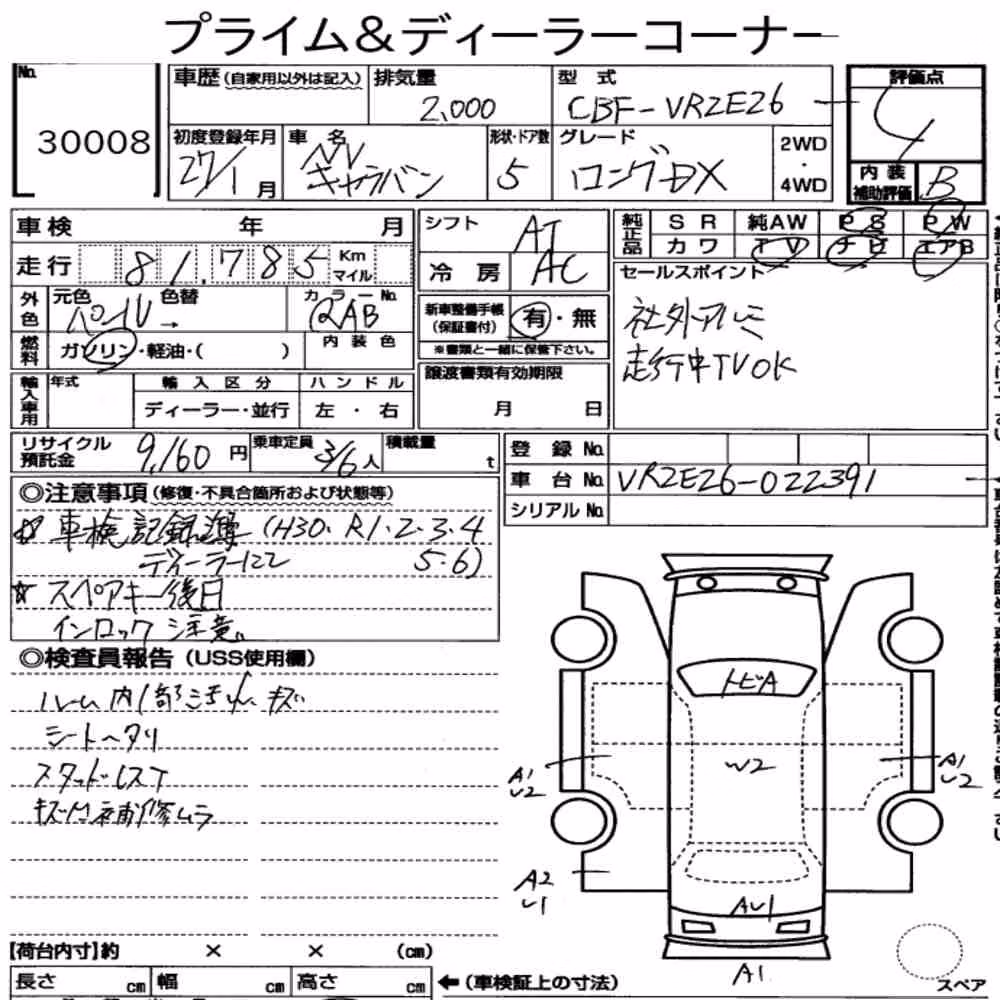 プライム&ディーラーコーナー
No.
30008
車歴(自家用以外は記入)
排気量
2,000
型 式
CBF-VR2E26
評価点
4
初度登録年月
27/1 月
車 名
NV
キャラバン
形状・ドア数
5
グレード
ロングDX
2WD
・
4WD
内 装
補助評価
B
車検 年 月
シフト
AT
純正品
S R 純AW P S P W
カワ T V ナビ エアB
走行 81.785 Km
マイル
冷 房
AC
セールスポイント
社外アルミ
走行中TVOK
外色
元色 色替
パール →
カラーNo.
QAB
新車整備手帳
(保証書付)
有・無
※書類と一緒に保管下さい。
燃料
ガソリン・軽油・( )
内 装 色
輸入車用
年式
輸 入 区 分
ハ ン ド ル
ディーラー・並行
左 ・ 右
譲渡書類有効期限
月 日
リサイクル
預託金
9,160 円
乗車定員
3/6人
積載量
t
登 録 No.
車 台 No.
VR2E26-022391
シリアル No.
◎注意事項(修復・不具合箇所および状態等)
☆ 車検記録簿 (H30. R1・2・3・4
5・6)
☆ スペアキー後日
インロック 注意。
◎検査員報告(USS使用欄)
ルーム内1部こすれ、キズ
シートヘタリ
スタッドレスT
キズ凹補修ムラ
トビA
W2
A1
U2
A1
U2
A2
U1
AU1
A1
スペア
【荷台内寸】約 × × (cm)
長さ cm 幅 cm 高さ cm
←(車検証上の寸法)